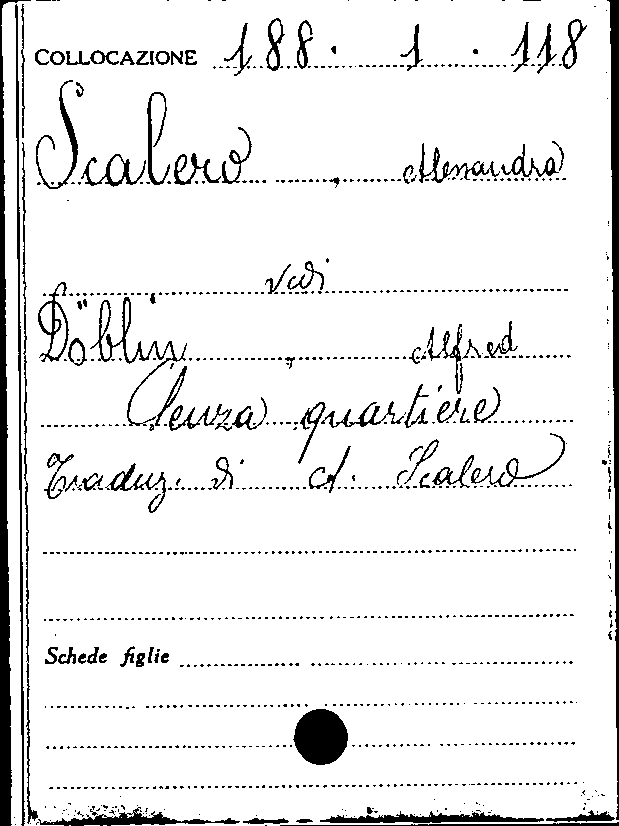 COLLOCAZIONE 188. 1. 118
Scalero, Alessandra
vedi
Döblin, Alfred
Senza quartiere
Traduz. di A. Scalero
Schede figlie